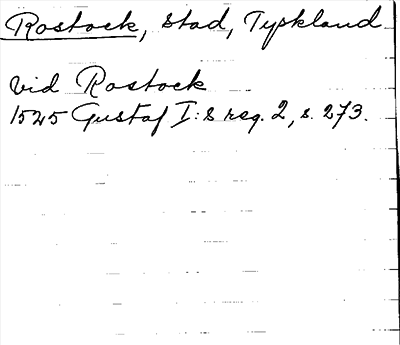 Rostock, stad, Tyskland
vid Rostock
1525 Gustaf I:s reg. 2, s. 273.